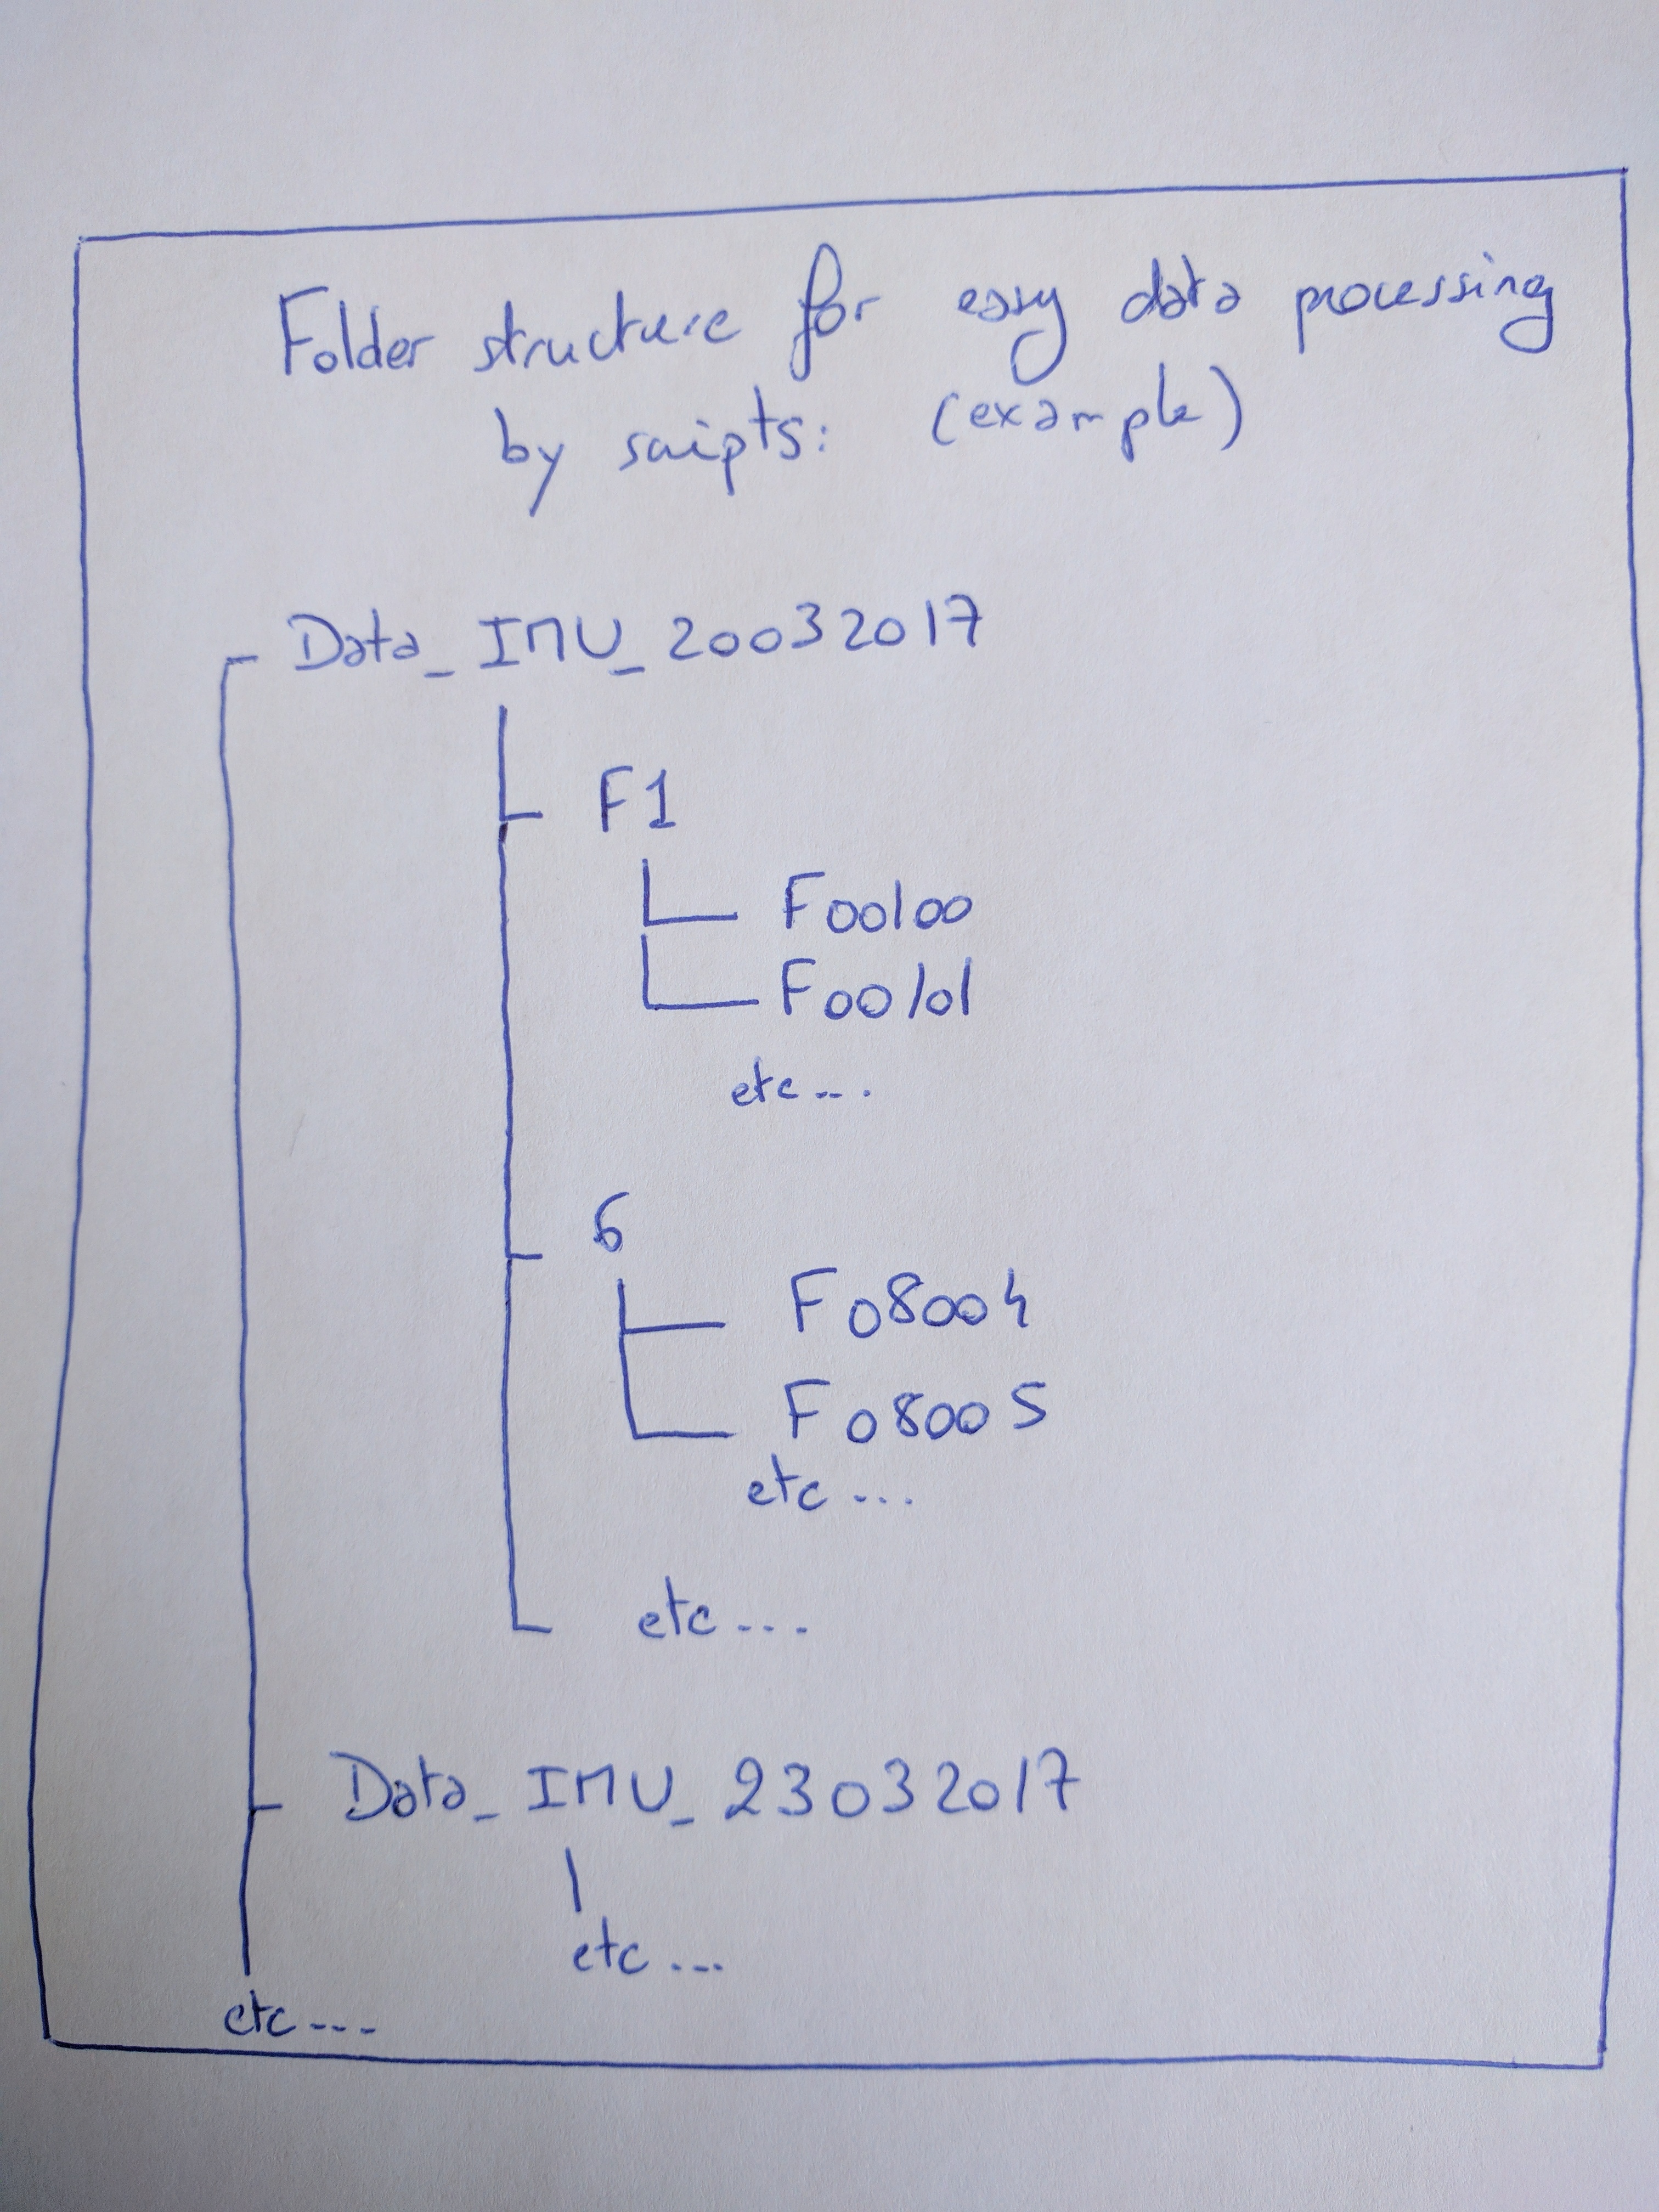 Folder structure for easy data processing
by scripts: (example)
Data_IMU_20032017
F1
F00100
F00101
etc...
6
F08004
F08005
etc...
etc...
Data_IMU_23032017
etc...
etc...